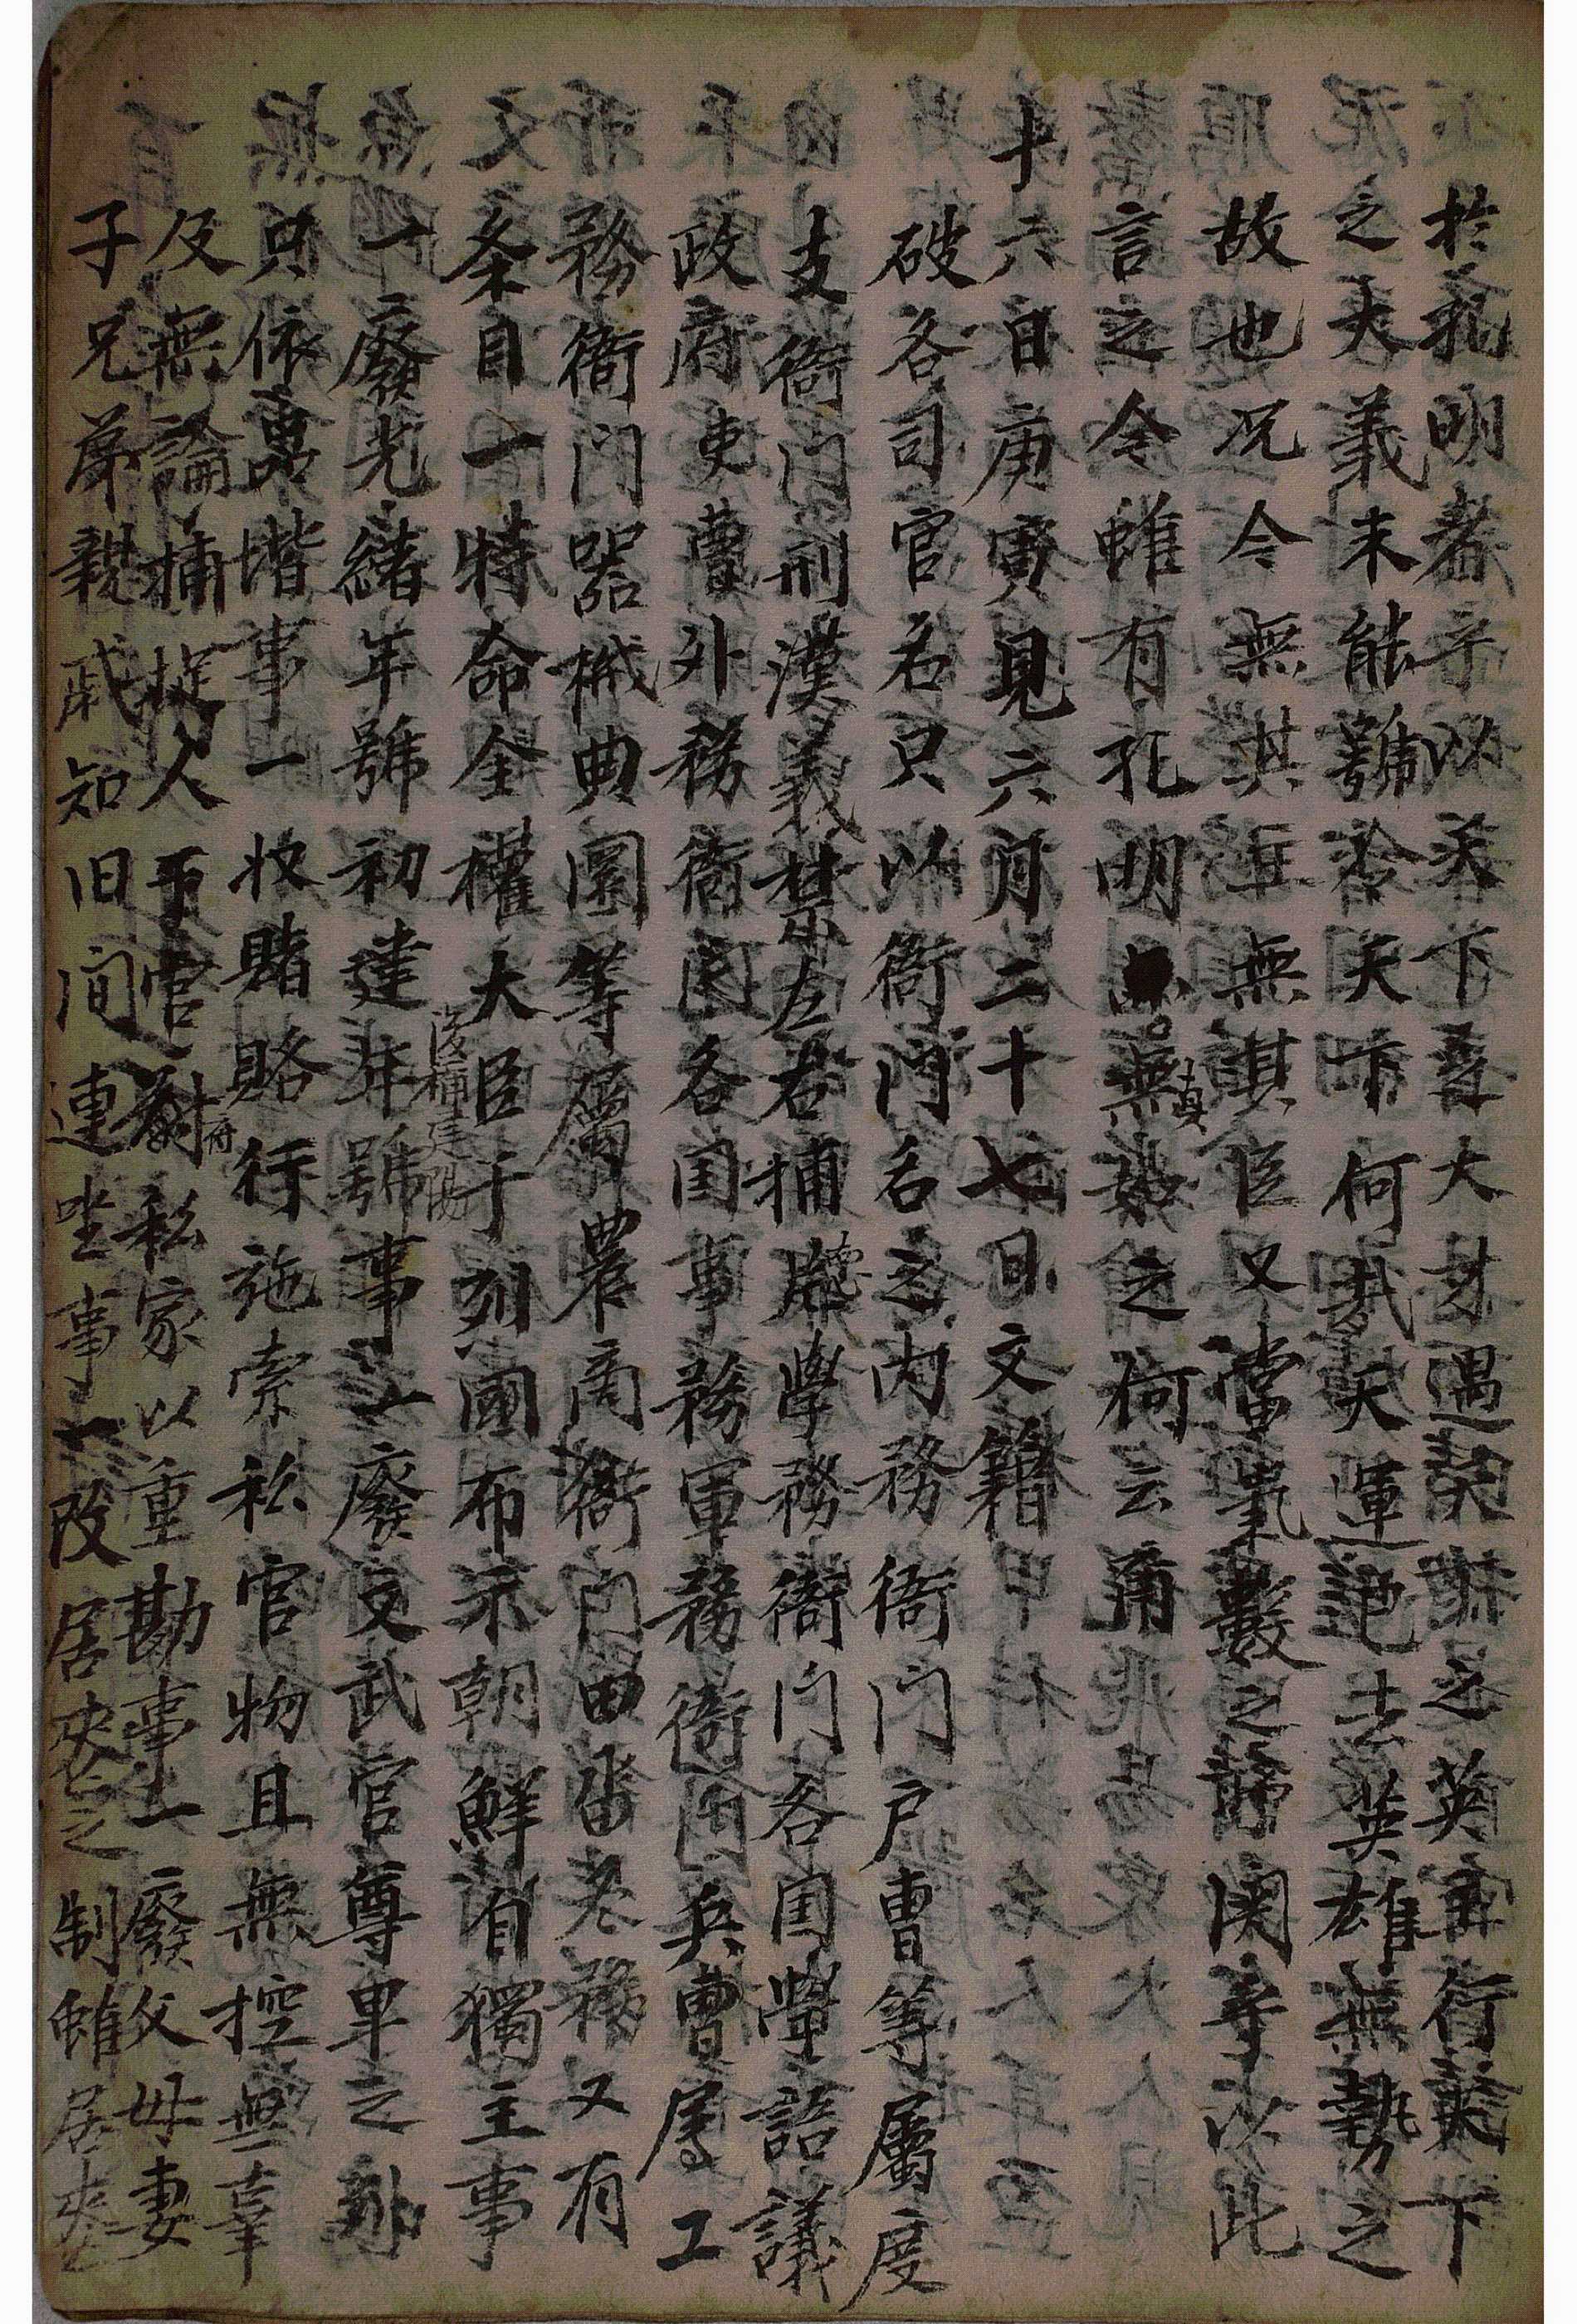 於孔明者乎以天下之大才遇契合之英主行天下
之大義未能歸咎天下何哉天運已去英雄無勢之
故也况今無其主無其臣又當氣數之關乎以此
言之今雖有孔明無如之何云爾
十六日庚寅見六月二十七日文籍
破各司官名只以衙門名之內務衙門戶曹等屬度
支衙門刑漢義禁左右捕廳學務衙門各國學語議
政府吏曹外務衙門各國事務軍務衙門兵曹屬工
務衙門器械典圜等屬農商衙門田畓老務又有
条目一特命全權大臣于列國布示朝鮮自獨主事
一廢光緖年號初建年號事一廢文武官尊卑之別
改稱建陽
只依品堦事一收賭賂行施索私官物且無控無辜
及無論捕捉人于官府私家以重勘事一廢父母妻
子兄弟親戚知旧間連坐事一改居喪之制雖居喪